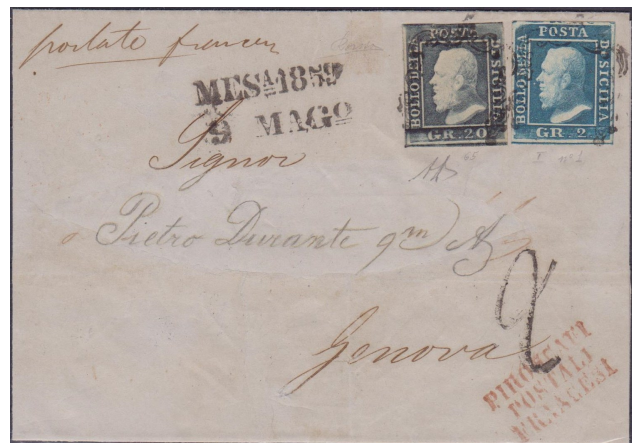 postale francese
MESA 1859
9 MAGO
POSTA
BOLLO DELLA
DI SICILIA
GR. 20
POSTA
BOLLO DELLA
DI SICILIA
GR. 2
Signor
Pietro Durante qm
Genova
2
PIROSCAFI
POSTALI
FRANCESI